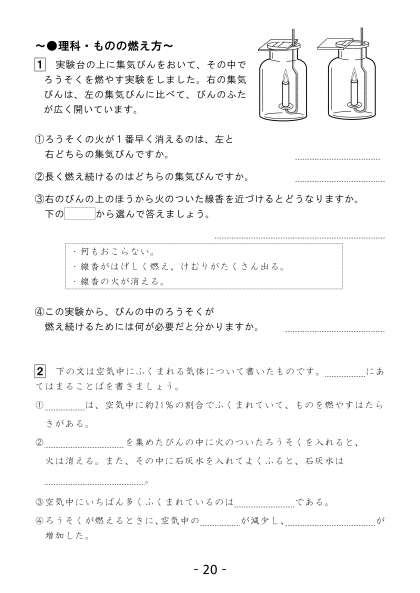 ～●理科・ものの燃え方～
1 実験台の上に集気びんをおいて、その中で
ろうそくを燃やす実験をしました。右の集気
びんは、左の集気びんに比べて、びんのふた
が広く開いています。
①ろうそくの火が１番早く消えるのは、左と
右どちらの集気びんですか。
②長く燃え続けるのはどちらの集気びんですか。
③右のびんの上のほうから火のついた線香を近づけるとどうなりますか。
下の から選んで答えましょう。
・何もおこらない。
・線香がはげしく燃え、けむりがたくさん出る。
・線香の火が消える。
④この実験から、びんの中のろうそくが
燃え続けるためには何が必要だと分かりますか。
2 下の文は空気中にふくまれる気体について書いたものです。 にあ
てはまることばを書きましょう。
① は、空気中に約21％の割合でふくまれていて、ものを燃やすはたら
きがある。
② を集めたびんの中に火のついたろうそくを入れると、
火は消える。また、その中に石灰水を入れてよくふると、石灰水は
。
③空気中にいちばん多くふくまれているのは である。
④ろうそくが燃えるときに、空気中の が減少し、 が
増加した。
- 20 -